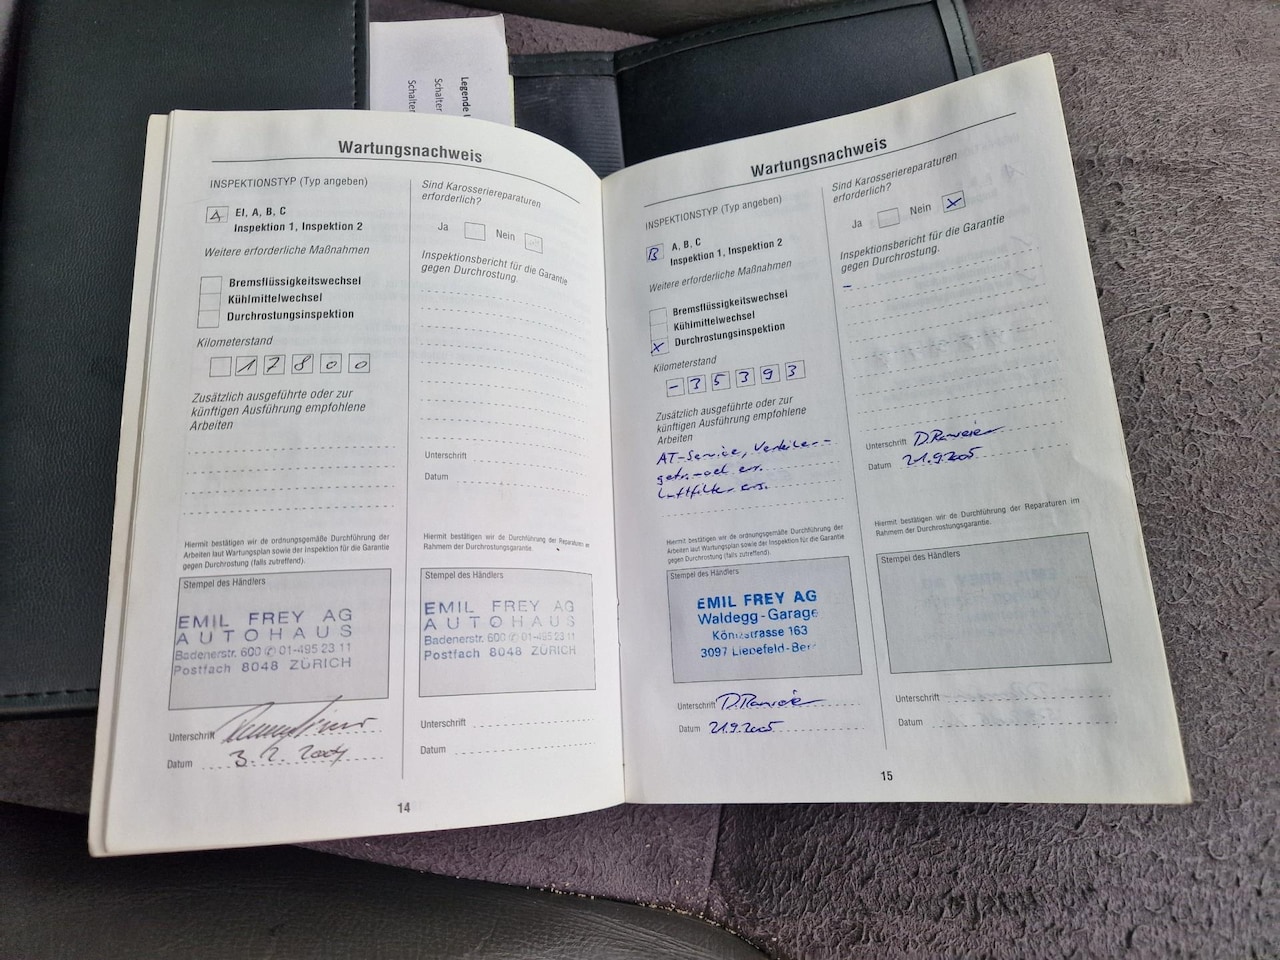 Legende
Schalter
Schalter
Wartungsnachweis
INSPEKTIONSTYP (Typ angeben)
A
EI, A, B, C
Inspektion 1, Inspektion 2
Weitere erforderliche Maßnahmen
Bremsflüssigkeitswechsel
Kühlmittelwechsel
Durchrostungsinspektion
Kilometerstand
17800
Zusätzlich ausgeführte oder zur
künftigen Ausführung empfohlene
Arbeiten
Hiermit bestätigen wir de ordnungsgemäße Durchführung der
Arbeiten laut Wartungsplan sowie der Inspektion für die Garantie
gegen Durchrostung (falls zutreffend).
Stempel des Händlers
EMIL FREY AG
AUTOHAUS
Badenerstr. 600 ✆ 01-495 23 11
Postfach 8048 ZÜRICH
Unterschrift
Datum 3. 2. 2004
Sind Karosseriereparaturen
erforderlich?
Ja Nein
Inspektionsbericht für die Garantie
gegen Durchrostung.
Unterschrift
Datum
Hiermit bestätigen wir de Durchführung der Reparaturen im
Rahmen der Durchrostungsgarantie.
Stempel des Händlers
EMIL FREY AG
AUTOHAUS
Badenerstr. 600 ✆ 01-495 23 11
Postfach 8048 ZÜRICH
Unterschrift
Datum
14
Wartungsnachweis
INSPEKTIONSTYP (Typ angeben)
B
A, B, C
Inspektion 1, Inspektion 2
Weitere erforderliche Maßnahmen
Bremsflüssigkeitswechsel
Kühlmittelwechsel
x Durchrostungsinspektion
Kilometerstand
- 35393
Zusätzlich ausgeführte oder zur
künftigen Ausführung empfohlene
Arbeiten
AT-Service,
Luftfilter ers.
Hiermit bestätigen wir de ordnungsgemäße Durchführung der
Arbeiten laut Wartungsplan sowie der Inspektion für die Garantie
gegen Durchrostung (falls zutreffend).
Stempel des Händlers
EMIL FREY AG
Waldegg-Garage
Könizstrasse 163
3097 Liebefeld-Bern
Unterschrift
Datum 21.9.2005
Sind Karosseriereparaturen
erforderlich?
Ja Nein x
Inspektionsbericht für die Garantie
gegen Durchrostung.
-
Unterschrift
Datum 21.9.2005
Hiermit bestätigen wir de Durchführung der Reparaturen im
Rahmen der Durchrostungsgarantie.
Stempel des Händlers
Unterschrift
Datum
15